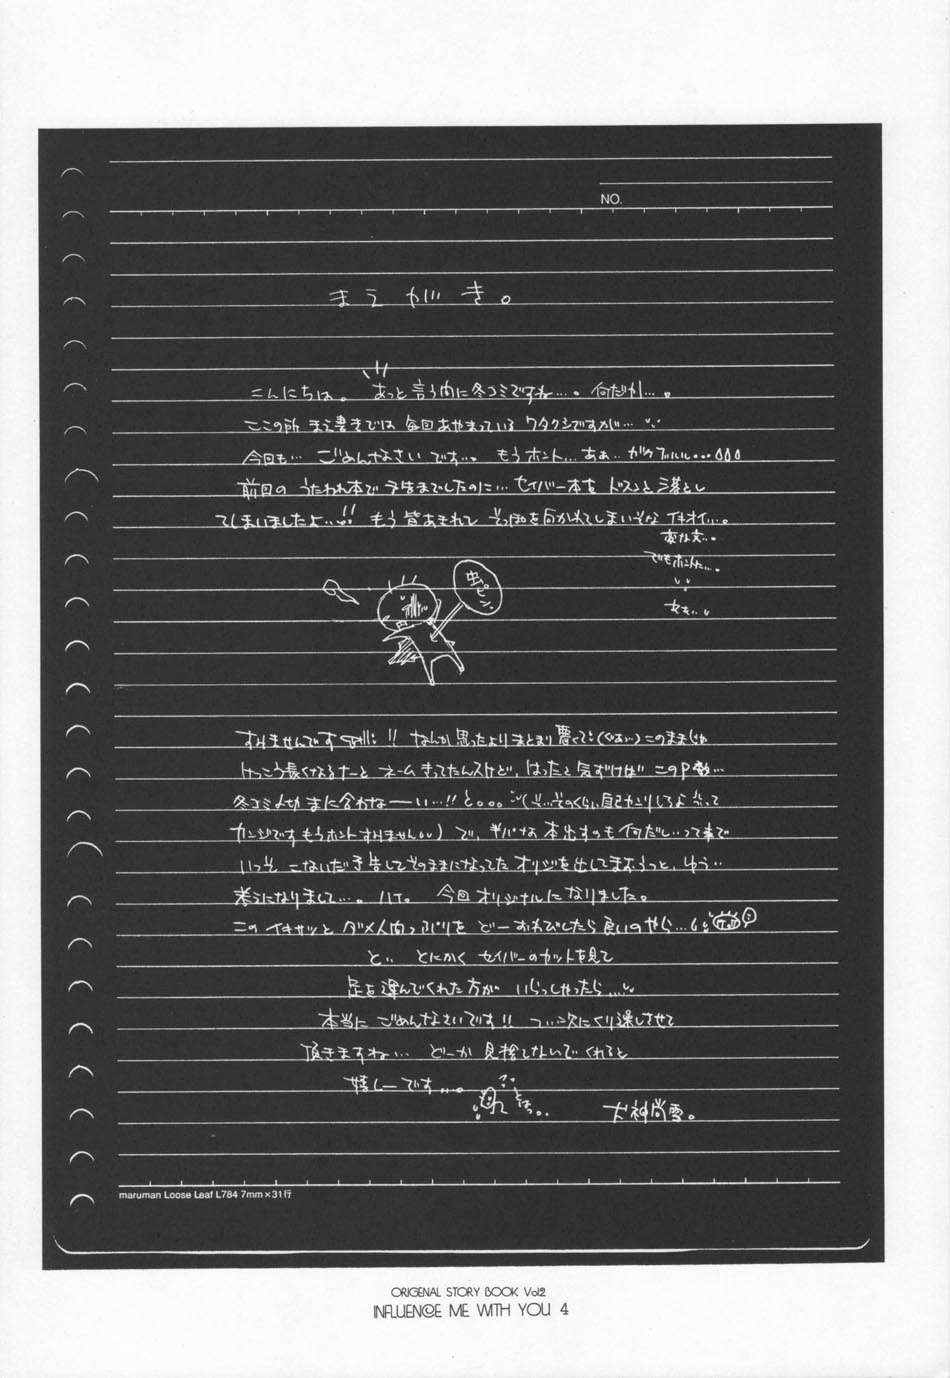 NO.
まえがき。
こんにちは。 あっと言う内に冬コミですね…。何だか…。
ここの所 まえ書きでは 毎回あやまっている ワタクシですが…
今回も… ごめんなさい です…。 もう ホント… あぁ… ガクブルル…
前回の うたわれ本で 予告までしたのに… セイバー本を ドスンと 落とし
てしまいましたよ…!! もう 皆あきれて そっぽを向かれてしまいそな イキオイ…。
変な文…。
でもホント…。
虫ピン。
すみませんです !! なんか 思ったより まとまり悪くて (ぐぁぃ) このままじゃ
けっこう長くなるナーと ネーム きってたんスけど、はったと 気ずけば このP数…
冬コミ〆切 まに合わなーーい…!! と。。。 (そ…そのくらい 自己カンリしろよ って
カンジです もうホント すみません) で、ハンパな 本出すのも 何だし… って事で
いっそ こないだ 予告して そのままになってた オリジを出してしまおうっと、ゆう
考えになりまして…。ハイ。 今回 オリジナルに なりました。
この イキサツと ダメ人間っぷりを どー おわびしたら 良いのやら…
と とにかく セイバーの カットを見て
足を 運んでくれた 方が いらっしゃったら…
本当に ごめんなさいです!! つい次に くり越しさせて
頂きますね… どーか 見捨てないで くれると
嬉しーです…。
犬神尚雪。
maruman Loose Leaf L784 7mm×31行
ORIGENAL STORY BOOK Vol2
INFLUENCE ME WITH YOU 4